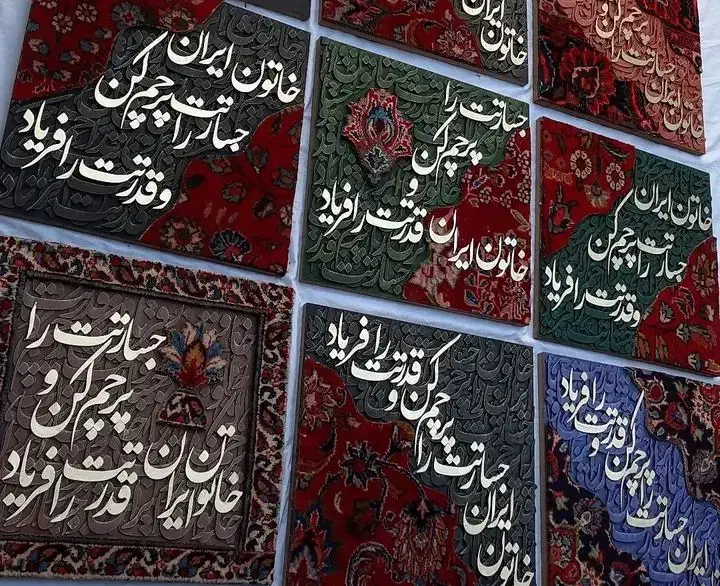 پرچم کن و
جسارتت را
خاتون ایران
ایران
خاتون
خاتون ایران
جسارتت را پرچم کن
و قدرتت را فریاد
جسارتت را
پرچم کن
و
قدرتت را فریاد
خاتون ایران
خاتون ایران
جسارتت را پرچم کن
و قدرتت را فریاد
ایران
جسارتت را
پرچم کن
و قدرتت را فریاد
خاتون
ایران
جسارتت را
پرچم کن
و قدرتت را فریاد
جسارتت را
پرچم کن و
قدرتت را فریاد
خاتون ایران